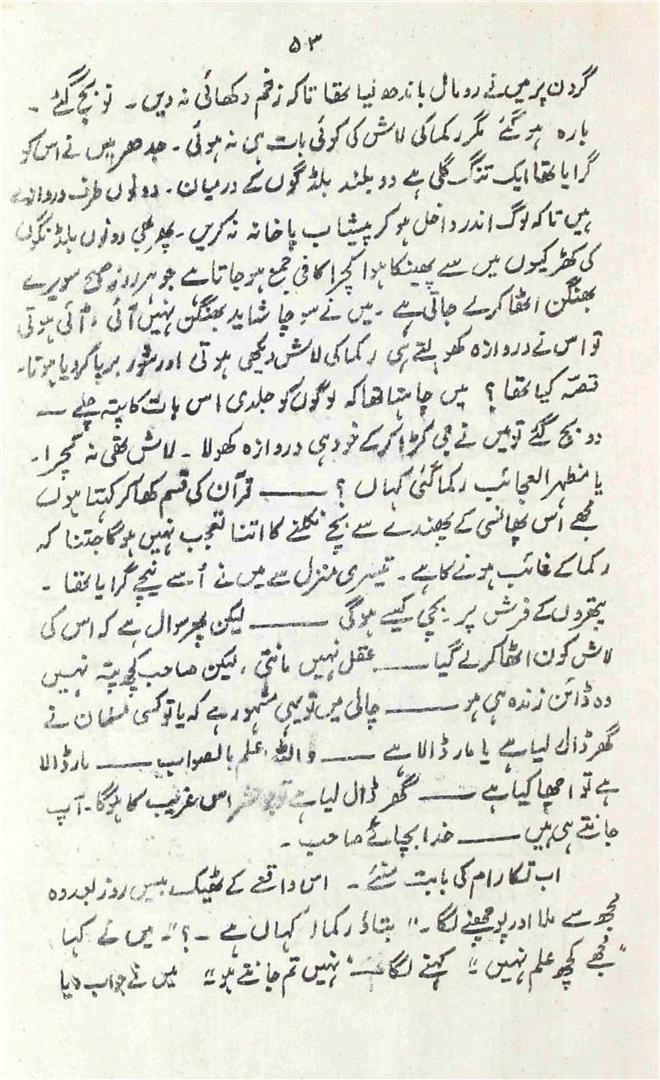 ۵۳
گردن پر میں نے رومال باندھ لیا تھا تاکہ زخم دکھائی نہ دیں ۔ نو بج گئے ۔
بارہ ہو گئے مگر رکما کی لاش کی کوئی بات ہی نہ ہوئی ۔ جدھر میں نے اس کو
گرایا تھا ایک تنگ گلی ہے دو بلند بلڈنگوں کے درمیان ۔ دونوں طرف دروازے
ہیں تاکہ لوگ اندر داخل ہو کر پیشاب پاخانہ نہ کریں ۔ پھر بھی دونوں بلڈنگوں
کی کھڑکیوں میں سے پھینکا ہوا کچرا کافی جمع ہو جاتا ہے جو ہر روز صبح سویرے
بھنگن اٹھا کر لے جاتی ہے ۔ میں نے سوچا شاید بھنگن نہیں آئی ، آئی ہوتی
تو اس نے دروازہ کھولتے ہی رکما کی لاش دیکھی ہوتی اور شور برپا کر دیا ہوتا ۔
قصّہ کیا تھا ؟ میں چاہتا تھا کہ لوگوں کو جلدی اس بات کا پتہ چلے —
دو بج گئے تو میں نے جی کڑا کر کے خود ہی دروازہ کھولا ۔ لاش تھی نہ کچرا ۔
یا مظہر العجائب رکما گئی کہاں ؟ —— قرآن کی قسم کھا کر کہتا ہوں
مجھے اس پھانسی کے پھندے سے بچ نکلنے کا اتنا تعجب نہیں ہوگا جتنا کہ
رکما کے غائب ہونے کا ہے ۔ تیسری منزل سے میں نے اُسے نیچے گرایا تھا ۔
پتھروں کے فرش پر ۔ بچی کیسے ہوگی —— لیکن پھر سوال ہے کہ اس کی
لاش کون اٹھا کر لے گیا —— عقل نہیں مانتی ، لیکن صاحب کچھ پتہ نہیں
وہ ڈائن زندہ ہی ہو —— چالی میں تو یہی مشہور ہے کہ یا تو کسی مسلمان نے
گھر ڈال لیا ہے یا مار ڈالا ہے —— واللہ اعلم بالصواب —— مار ڈالا
ہے تو اچھا کیا ہے —— گھر ڈال لیا ہے تو جو حشر اس غریب کا ہوگا ۔ آپ
جانتے ہی ہیں —— خدا بچائے صاحب ۔
اب تکا رام کی بابت سنئے ۔ اس واقعے کے ٹھیک بیس روز بعد وہ
مجھ سے ملا اور پوچھنے لگا ۔ " بتاؤ رکما کہاں ہے ۔ ؟ " ۔ میں نے کہا
" مجھے کچھ علم نہیں " کہنے لگا — " نہیں تم جانتے ہو " میں نے جواب دیا